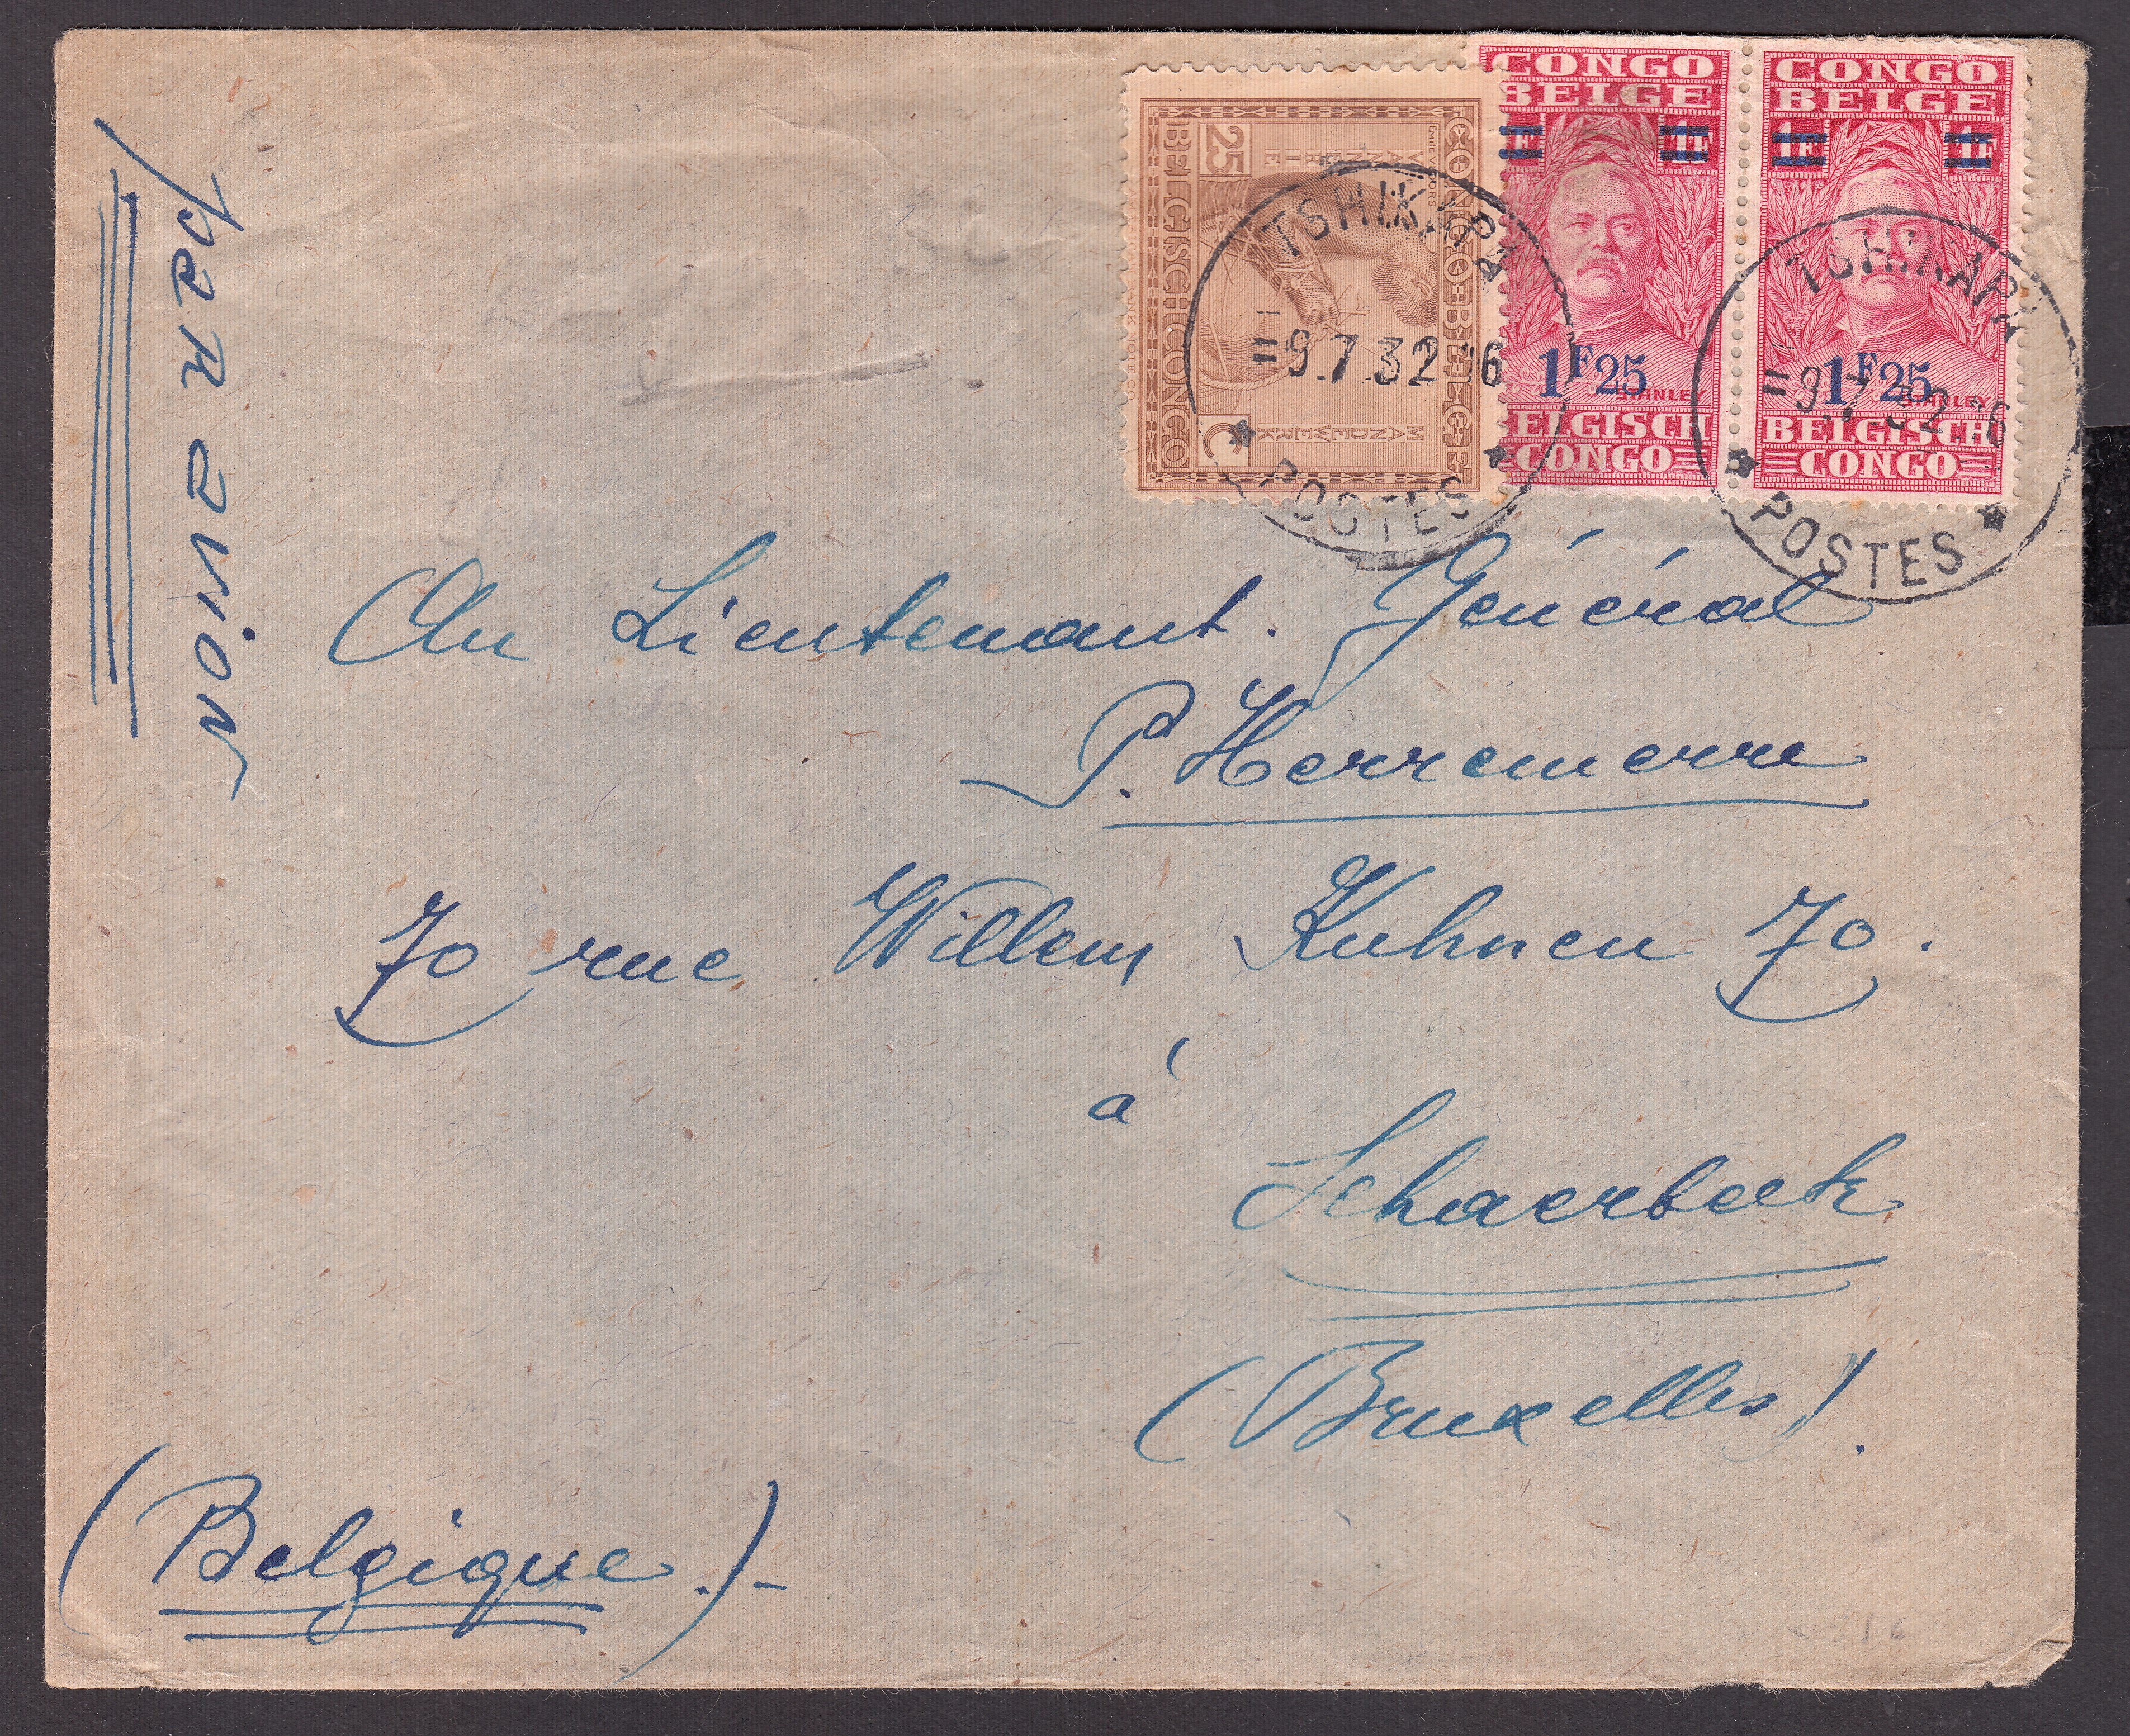 par avion
CONGO BELGE
BELGISCH CONGO
25
C
VANNERIE
MANDEWERK
CONGO
BELGE
1F
1F
1F25
STANLEY
ELGISCH
CONGO
CONGO
BELGE
1F
1F
1F25
STANLEY
BELGISCH
CONGO
TSHIKAPA
=9.7.32.16
POSTES
TSHIKAPA
=9.7.32.16
POSTES
Au Lieutenant. Général
P. Herremerre
70 rue Willem Kuhnen 70.
à
Schaerbeek
(Bruxelles).
(Belgique.)-